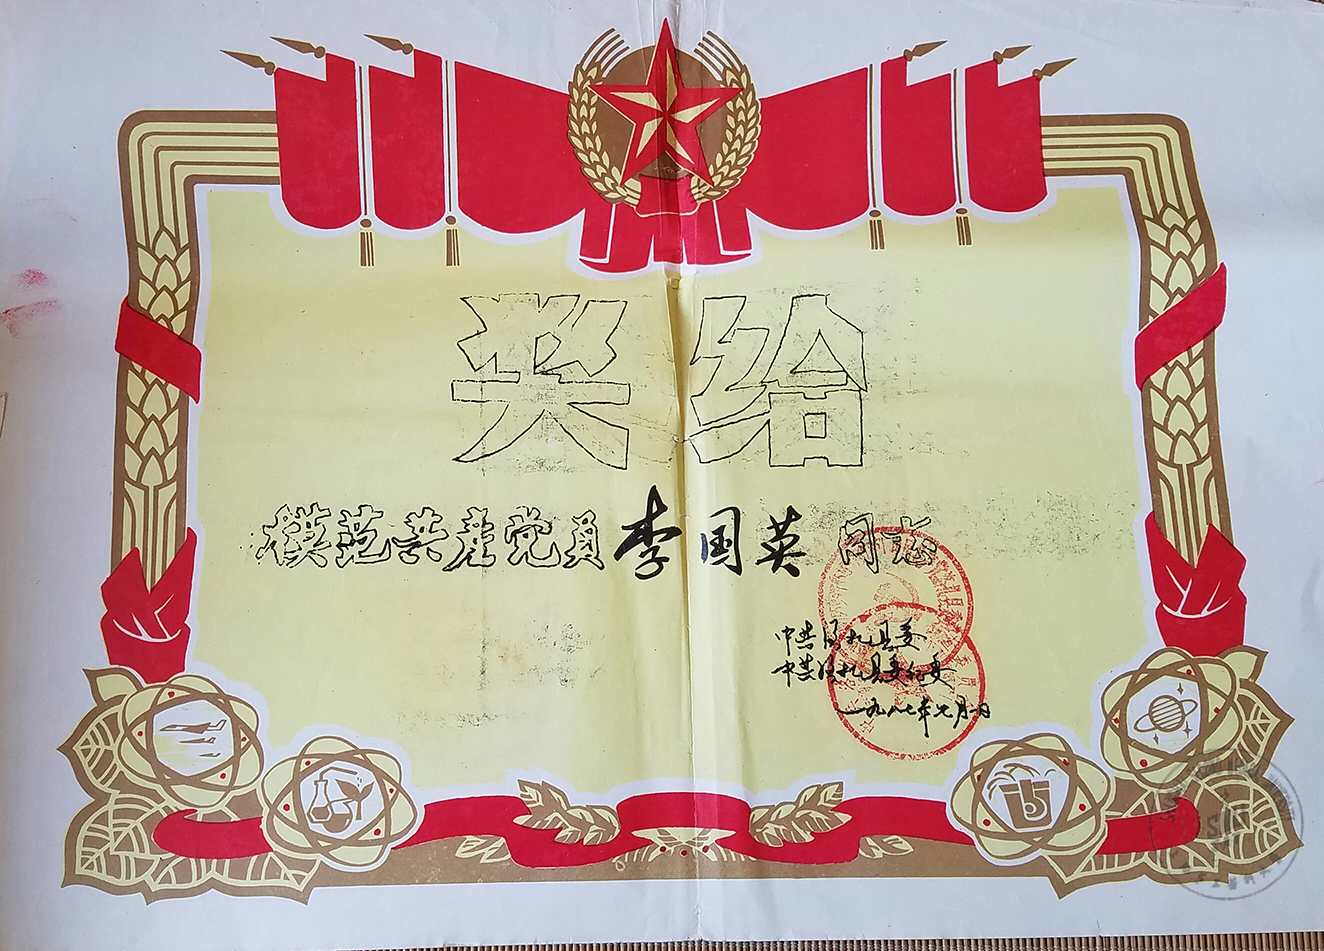 奖给
模范共产党员李国英同志
中共 县委
中共 县委 委
一九八七年七月一日